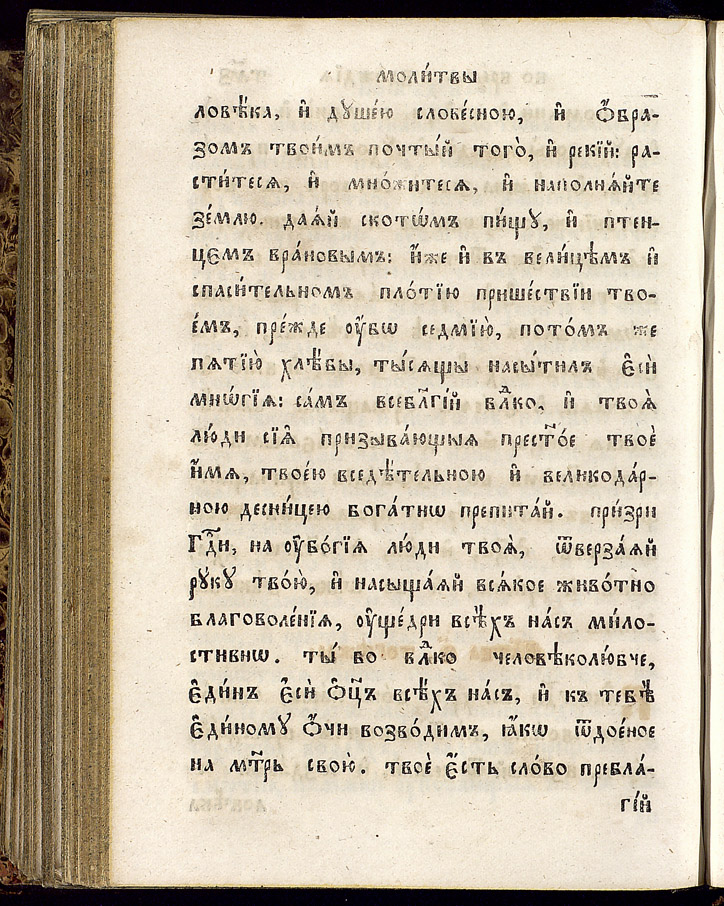 моли́твы
ловѣ́ка, и҆ дꙋше́ю слове́сною, и҆ ѻ҆́бра-
зомъ твои́мъ почты́й того̀, и҆ реки́й: ра-
сти́тесѧ, и҆ мно́житесѧ, и҆ наполнѧ́йте
зе́млю. даѧ́й скотѡ́мъ пи́щꙋ, и҆ птен-
цємъ вра́новымъ: и҆́же и҆ въ вели́цѣмъ и҆
спаси́тельномъ пло́тїю прише́ствїи тво-
е́мъ, пре́жде ᲂу҆́бѡ седмїю̀, пото́мъ же
пѧтїю̀ хлѣ́бы, ты́сѧщы насы́тилъ є҆сѝ
мнѡ́гїѧ: са́мъ всебл҃гі́й влⷣко, и҆ твоѧ̑
лю́ди сїѧ̑ призыва́ющыѧ прест҃о́е твоѐ
и҆́мѧ, твое́ю вседѣ́тельною и҆ великода́р-
ною десни́цею бога́тнѡ препита́й. при́зри
Гдⷭ҇и, на ᲂу҆бѡ́гїѧ лю́ди твоѧ̑, ѿверза́ѧй
рꙋ́кꙋ твою̀, и҆ насыща́ѧй всѧ́кое живо́тно
благоволе́нїѧ, ᲂу҆ще́дри всѣ́хъ на́съ ми́ло-
стивнѡ. ты́ бо влⷣко человѣколю́бче,
є҆ди́нъ є҆сѝ ѻ҆ц҃ъ всѣ́хъ на́съ, и҆ къ тебѣ̀
є҆ди́номꙋ ѻ҆́чи возво́димъ, ꙗ҆́кѡ ѿдое́ное
на мт҃рь свою̀. твоѐ є҆́сть сло́во пребла-
гі́й